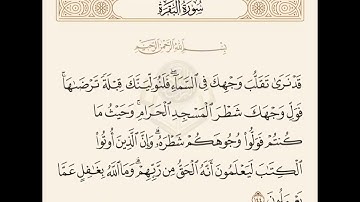 سُورَةُ الْبَقَرَةِ
بِسْمِ اللَّهِ الرَّحْمَٰنِ الرَّحِيمِ
قَدْ نَرَىٰ تَقَلُّبَ وَجْهِكَ فِي السَّمَاءِ ۖ فَلَنُوَلِّيَنَّكَ قِبْلَةً تَرْضَاهَا ۚ
فَوَلِّ وَجْهَكَ شَطْرَ الْمَسْجِدِ الْحَرَامِ ۚ وَحَيْثُ مَا
كُنتُمْ فَوَلُّوا وُجُوهَكُمْ شَطْرَهُ ۗ وَإِنَّ الَّذِينَ أُوتُوا
الْكِتَابَ لَيَعْلَمُونَ أَنَّهُ الْحَقُّ مِن رَّبِّهِمْ ۗ وَمَا اللَّهُ بِغَافِلٍ عَمَّا
يَعْمَلُونَ ١٤٤